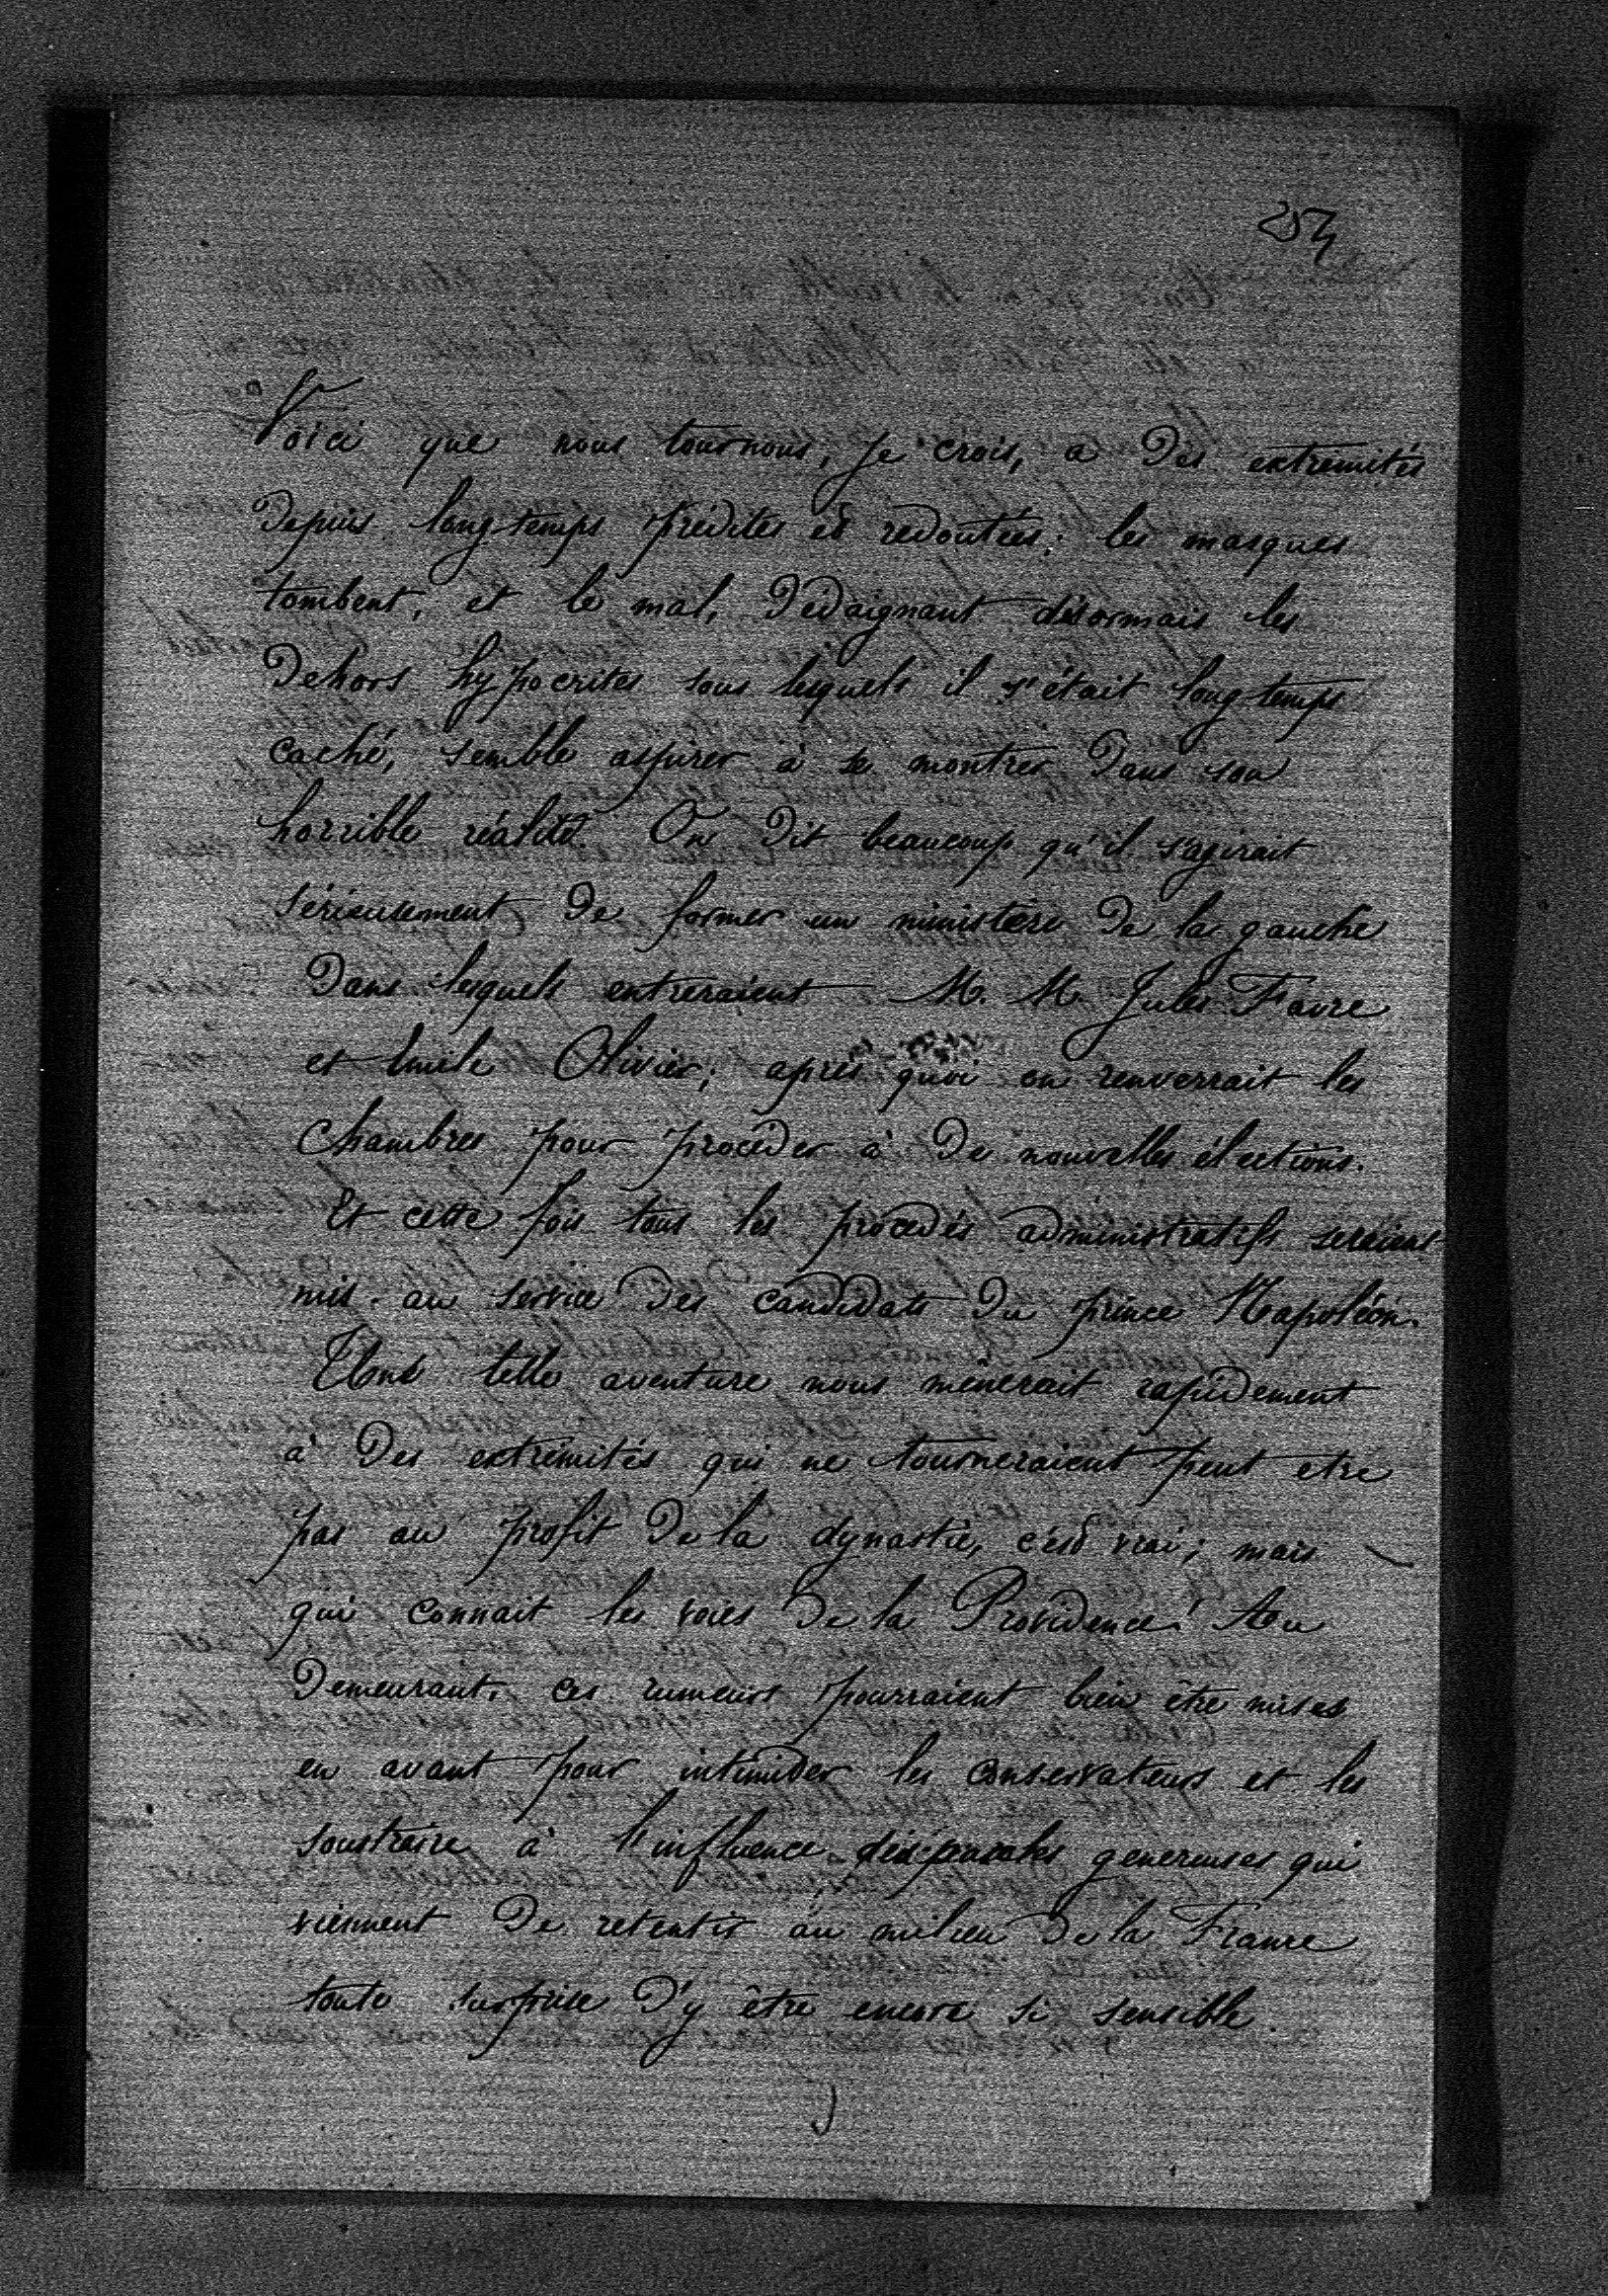 257
Voici que nous tournons, je crois, a des extremités
depuis longtemps prédites et redoutées; les masques
tombent, et le mal, dédaignant désormais les
dehors hypocrites sous lesquels il s'était longtemps
caché, semble aspirer à se montrer dans son
horrible réalité. On dit beaucoup qu'il s'agirait
sérieusement de former un ministère de la gauche
dans lesquels entreraient M. M. Jules Favre
et Emile Olivier; après quoi on renverrait les
Chambres pour procéder à de nouvelles élections.
Et cette fois tous les procédés administratifs seraient
mis au service des candidats du prince Napoléon.
Une telle aventure nous mènerait rapidement
à des extrémités qui ne tourneraient peut etre
pas au profit de la dynastie, c'est vrai; mais
qui connait les voies de la Providence! Au
demeurant, ces rumeurs pourraient bien être mises
en avant pour intimider les conservateurs et les
soustraire à l'influence des généreuses qui
viennent de retentir au milieu de la France
toute surprise d'y être encore si sensible.